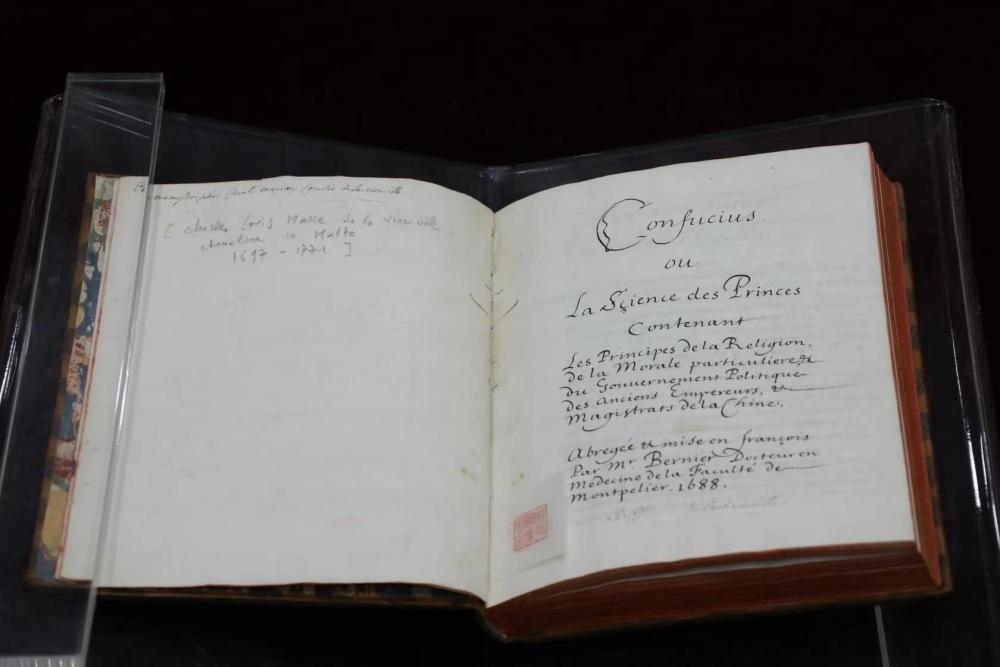 manuscriptis
[ Charles Louis Marie de la Vieuville
chevalier de Malte
1697 - 1771 ]
Confucius
ou
La Sçience des Princes
Contenant
Les Principes de la Religion,
de la Morale particuliere, &
du Gouvernement Politique
des anciens Empereurs, &
Magistrats de la Chine.
Abregée & mise en françois
Par Mr. Bernier Docteur en
Medecine de la Faculté de
Montpelier. 1688.